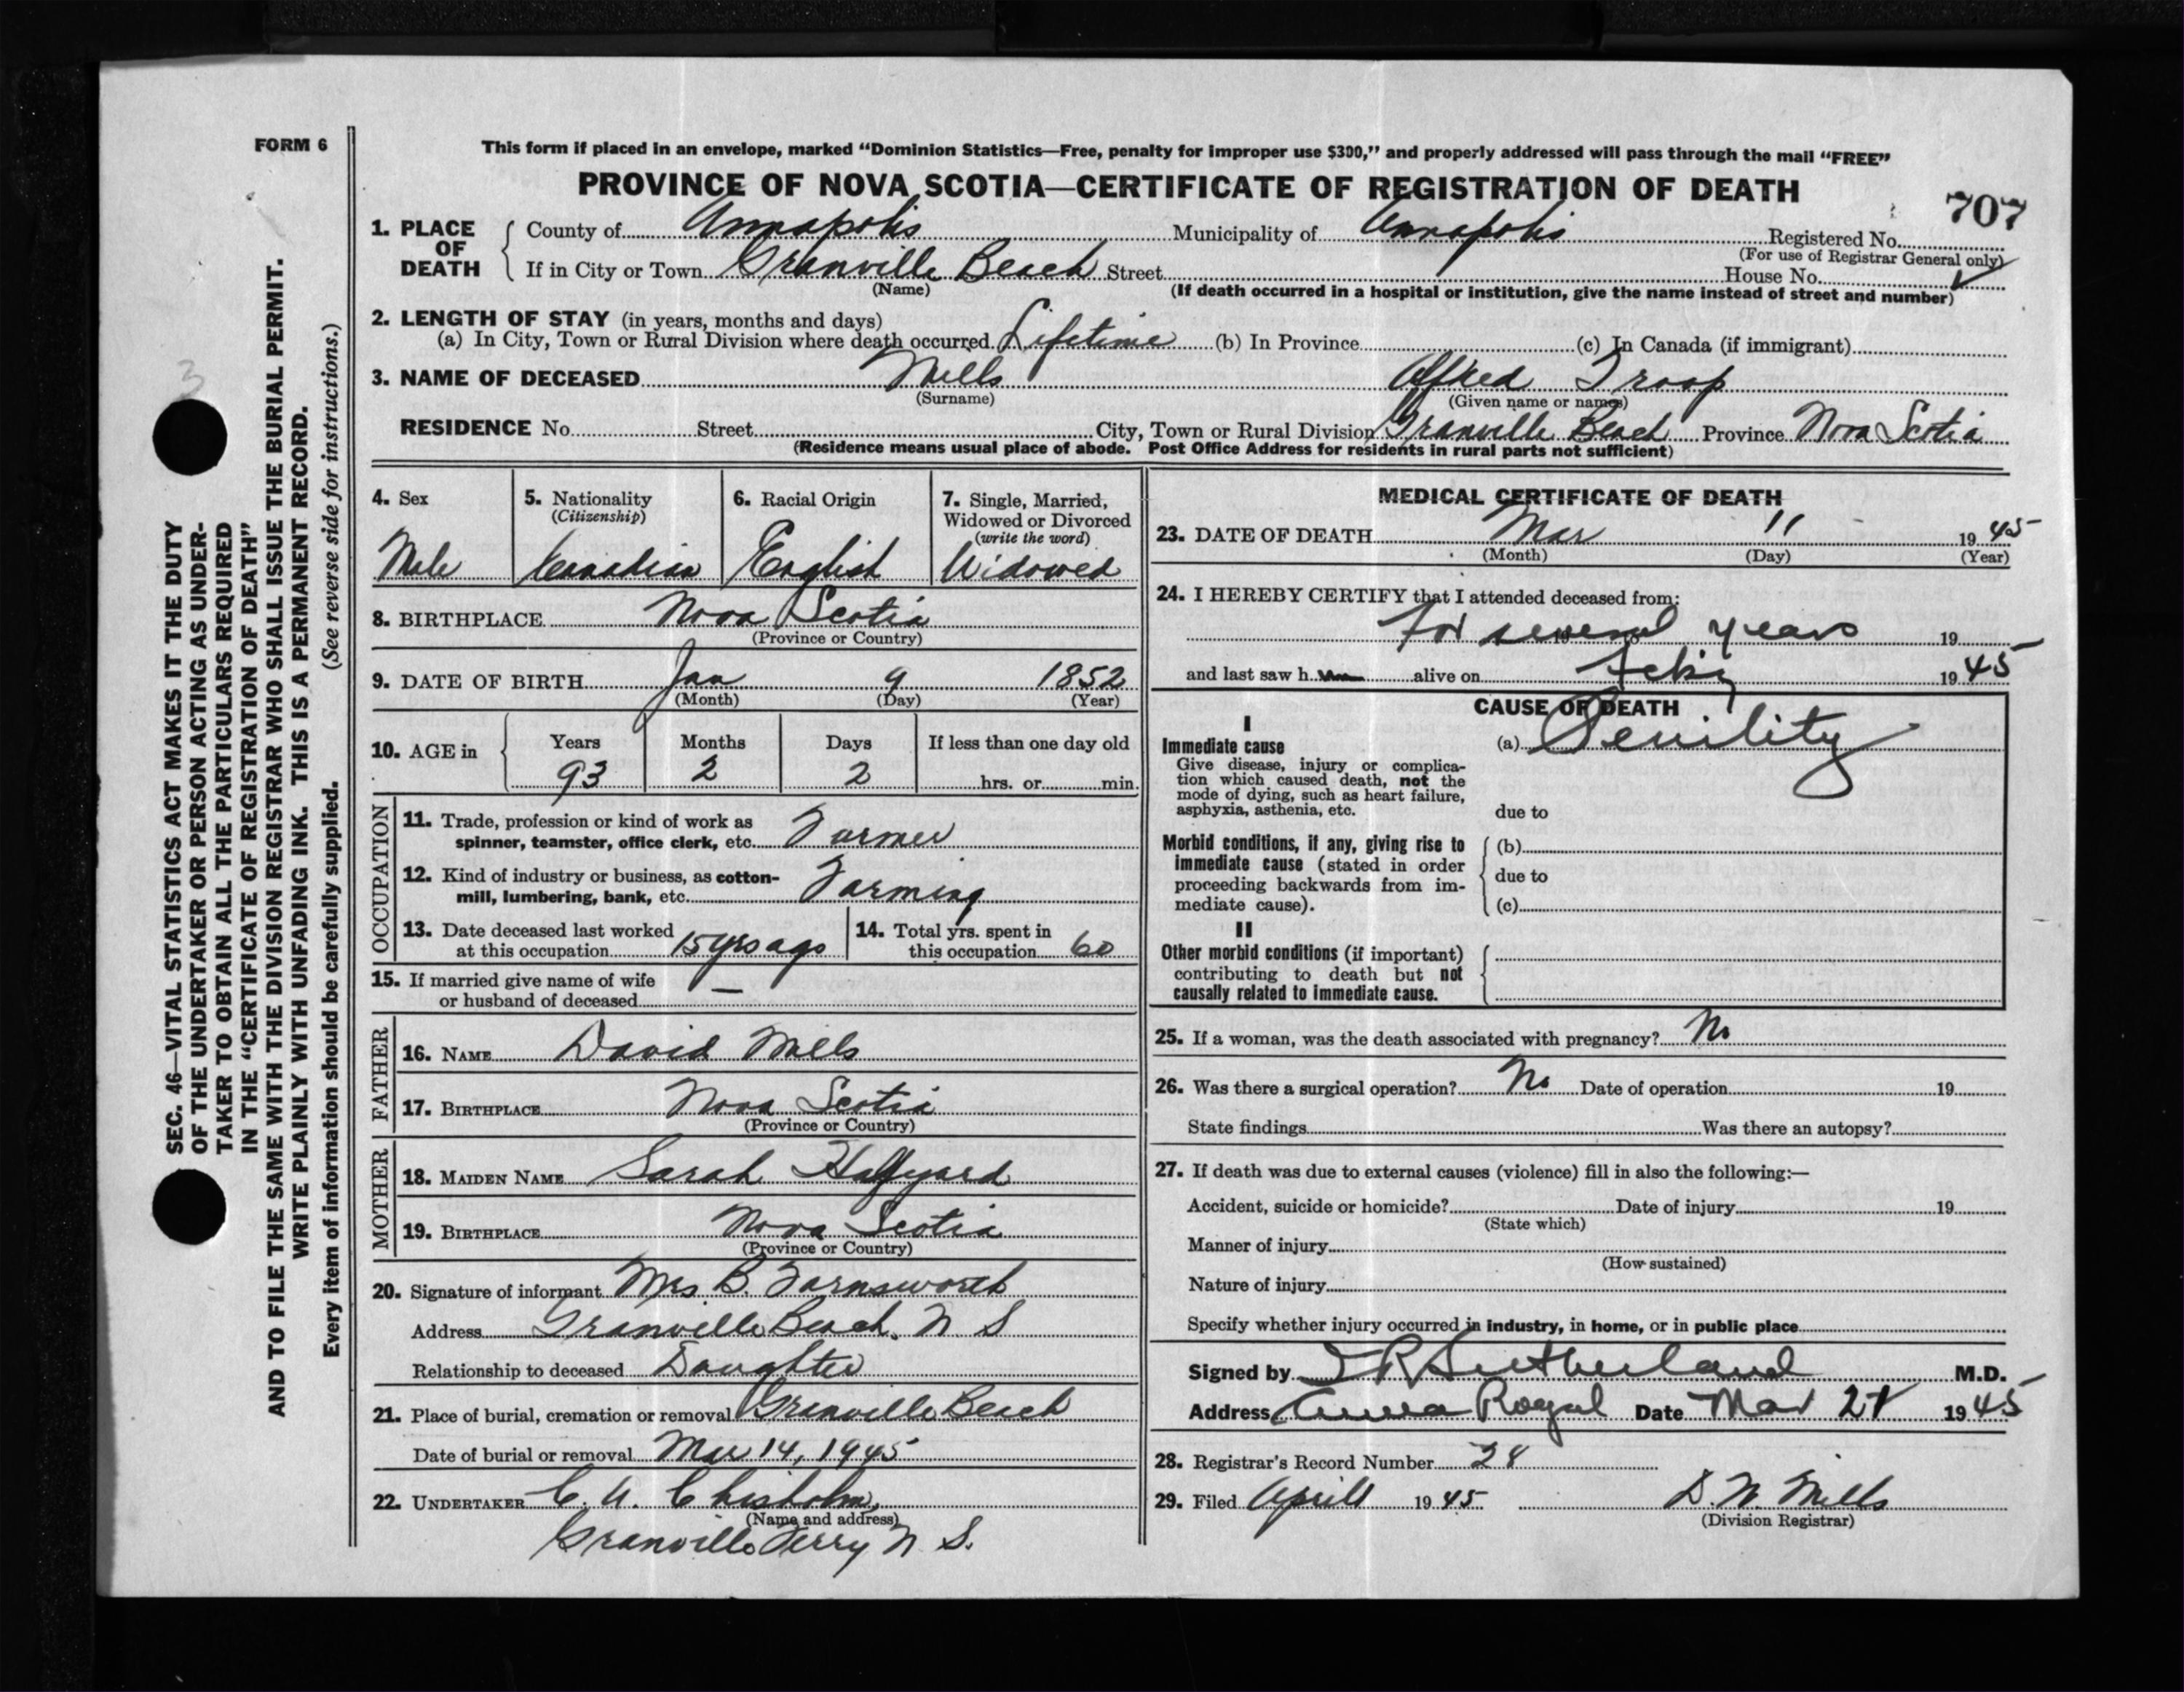 FORM 6
This form if placed in an envelope, marked “Dominion Statistics—Free, penalty for improper use $300,” and properly addressed will pass through the mail “FREE”
PROVINCE OF NOVA SCOTIA—CERTIFICATE OF REGISTRATION OF DEATH
707
1. PLACE OF DEATH
County of Annapolis Municipality of Annapolis Registered No.
(For use of Registrar General only)
If in City or Town Granville Beach Street House No.
(Name) (If death occurred in a hospital or institution, give the name instead of street and number)
2. LENGTH OF STAY (in years, months and days)
(a) In City, Town or Rural Division where death occurred. Lifetime (b) In Province (c) In Canada (if immigrant)
3. NAME OF DECEASED Mills Alfred Troop
(Surname) (Given name or names)
RESIDENCE No. Street City, Town or Rural Division Granville Beach Province Nova Scotia
(Residence means usual place of abode. Post Office Address for residents in rural parts not sufficient)
4. Sex
Male
5. Nationality
(Citizenship)
Canadian
6. Racial Origin
English
7. Single, Married,
Widowed or Divorced
(write the word)
Widowed
8. BIRTHPLACE Nova Scotia
(Province or Country)
9. DATE OF BIRTH Jan 9 1852
(Month) (Day) (Year)
10. AGE in
Years Months Days If less than one day old
93 2 2 hrs. or min.
OCCUPATION
11. Trade, profession or kind of work as
spinner, teamster, office clerk, etc. Farmer
12. Kind of industry or business, as cotton-
mill, lumbering, bank, etc. Farming
13. Date deceased last worked
at this occupation 15 yrs ago
14. Total yrs. spent in
this occupation 60
15. If married give name of wife
or husband of deceased —
FATHER
16. NAME David Mills
17. BIRTHPLACE Nova Scotia
(Province or Country)
MOTHER
18. MAIDEN NAME Sarah Halfyard
19. BIRTHPLACE Nova Scotia
(Province or Country)
20. Signature of informant Mrs B. Farnsworth
Address Granville Beach. N S
Relationship to deceased Daughter
21. Place of burial, cremation or removal Granville Beach
Date of burial or removal Mar 14, 1945
22. UNDERTAKER C. A. Chisholm,
(Name and address)
Granville Ferry N S.
MEDICAL CERTIFICATE OF DEATH
23. DATE OF DEATH Mar 11 1945
(Month) (Day) (Year)
24. I HEREBY CERTIFY that I attended deceased from:
for several years 19
and last saw h alive on 1945
CAUSE OF DEATH
I
Immediate cause
Give disease, injury or complica-
tion which caused death, not the
mode of dying, such as heart failure,
asphyxia, asthenia, etc.
(a) Senility
due to
Morbid conditions, if any, giving rise to
immediate cause (stated in order
proceeding backwards from im-
mediate cause).
(b)
due to
(c)
II
Other morbid conditions (if important)
contributing to death but not
causally related to immediate cause.
25. If a woman, was the death associated with pregnancy? No
26. Was there a surgical operation? No Date of operation 19
State findings Was there an autopsy?
27. If death was due to external causes (violence) fill in also the following:—
Accident, suicide or homicide? Date of injury 19
(State which)
Manner of injury
(How sustained)
Nature of injury
Specify whether injury occurred in industry, in home, or in public place
Signed by Sutherland M.D.
Address Anna Royal Date Mar 1945
28. Registrar's Record Number 28
29. Filed April 1945 D. W. Mills
(Division Registrar)
SEC. 46—VITAL STATISTICS ACT MAKES IT THE DUTY
OF THE UNDERTAKER OR PERSON ACTING AS UNDER-
TAKER TO OBTAIN ALL THE PARTICULARS REQUIRED
IN THE “CERTIFICATE OF REGISTRATION OF DEATH”
AND TO FILE THE SAME WITH THE DIVISION REGISTRAR WHO SHALL ISSUE THE BURIAL PERMIT.
WRITE PLAINLY WITH UNFADING INK. THIS IS A PERMANENT RECORD.
Every item of information should be carefully supplied. (See reverse side for instructions.)
3